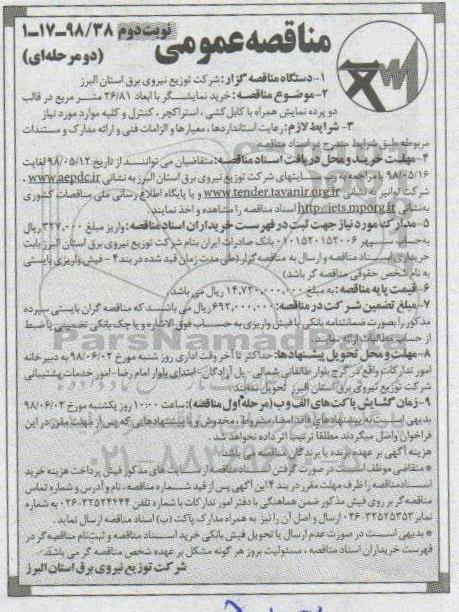 مناقصه عمومی
نوبت دوم ۹۸/۳۸-۱۷-۱
(دو مرحله ای)
۱- دستگاه مناقصه گزار: شرکت توزیع نیروی برق استان البرز
۲- موضوع مناقصه: خرید نمایشگر با ابعاد ۲۶/۸۱ متر مربع در قالب
دو پرده نمایش همراه با کابل کشی، استراکچر، کنترل و کلیه موارد مورد نیاز
۳- شرایط لازم: رعایت استانداردها، معیارها و الزامات فنی و ارائه مدارک و مستندات
مربوطه طبق شرایط مندرج در اسناد مناقصه
۴- مهلت خرید و محل دریافت اسناد مناقصه: متقاضیان می توانند از تاریخ ۹۸/۰۵/۱۲ لغایت
۹۸/۰۵/۱۶ با مراجعه به وب سایتهای شرکت توزیع نیروی برق استان البرز به نشانی www.aepdc.ir،
شرکت توانیر به نشانی www.tender.tavanir.org.ir و یا پایگاه اطلاع رسانی ملی مناقصات کشوری
به نشانی http://iets.mporg.ir اسناد مناقصه را مشاهده و اخذ نمایند.
۵- مدارک مورد نیاز جهت ثبت در فهرست خریداران اسناد مناقصه: واریز مبلغ ۳۲۷,۰۰۰ ریال
به حساب سپهر ۰۱۰۱۵۲۰۱۵۲۰۰۶ بانک صادرات ایران بنام شرکت توزیع نیروی برق استان البرز بابت
خریداری اسناد مناقصه و ارسال به مناقصه گزار (طی مدت زمان قید شده در بند ۴ - فیش واریزی بایستی
به نام شخص حقوقی مناقصه گر باشد)
۶- قیمت پایه مناقصه: به مبلغ ۱۴,۷۲۰,۰۰۰,۰۰۰ ریال می باشد.
۷- مبلغ تضمین شرکت در مناقصه: ۶۹۲,۰۰۰,۰۰۰ ریال می باشد که مناقصه گران بایستی سپرده
مذکور را بصورت ضمانتنامه بانکی یا فیش واریزی به حساب فوق الاشاره و یا چک بانکی تضمینی یا ضبط
از حساب مطالبات ارائه نمایند.
۸- مهلت و محل تحویل پیشنهادها: حداکثر تا آخر وقت اداری روز شنبه مورخ ۹۸/۰۶/۰۲ به دبیرخانه
امور تدارکات واقع در کرج بلوار طالقانی شمالی - پل آزادگان - ابتدای بلوار امام رضا - امور خدمات پشتیبانی
شرکت توزیع نیروی برق استان البرز تحویل نمایند.
۹- زمان گشایش پاکت های الف و ب (مرحله اول مناقصه): ساعت ۱۰:۰۰ روز یکشنبه مورخ ۹۸/۰۶/۰۳
بدیهی است به پیشنهادهای فاقد امضا، مشروط، مخدوش و یا پیشنهادهایی که پس از مهلت مقرر در این
فراخوان واصل میگردند مطلقا ترتیب اثر داده نخواهد شد.
هزینه آگهی بر عهده برنده یا برندگان مناقصه می باشد.
* متقاضی موظف است در صورت گرفتن اسناد مناقصه از سایت های مذکور فیش پرداخت هزینه خرید
اسناد مناقصه را ظرف مهلت مقرر در بند ۴ این آگهی پس از قید شماره مناقصه، نام و آدرس و شماره تماس
مناقصه گر بر روی فیش مذکور ضمن هماهنگی با دفتر امور تدارکات با شماره تلفن ۳۲۵۲۴۲۴۴-۰۲۶ به شماره
نمابر ۳۲۵۲۵۳۵۳-۰۲۶ ارسال و اصل آن را نیز به همراه مدارک پاکت (ب) اسناد مناقصه ارسال نماید.
* بدیهی است در صورت عدم ارسال یا تحویل فیش بانکی خرید اسناد مناقصه و ثبت نام مناقصه گر در
فهرست خریداران اسناد مناقصه، مسئولیت بروز هر گونه مشکل بر عهده شخص مناقصه گر می باشد.
شرکت توزیع نیروی برق استان البرز
ParsNamadData